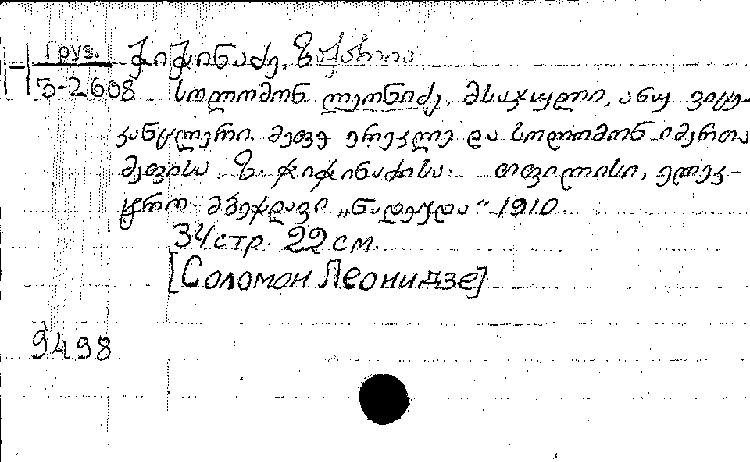 Груз.
3-2608
ჭიჭინაძე, ზაქარია
სოლომონ ლეონიძე, მსაჯული, ანუ ვიცე-
კანცლერი მეფე ერეკლე და სოლომონ იმერთა
მეფისა ზ. ჭიჭინაძისა. თფილისი, ელეკ-
ტრო მბეჭდავი „ნადეჟდა“ 1910
34 стр. 22 см
[Соломон Леонидзе]
9498